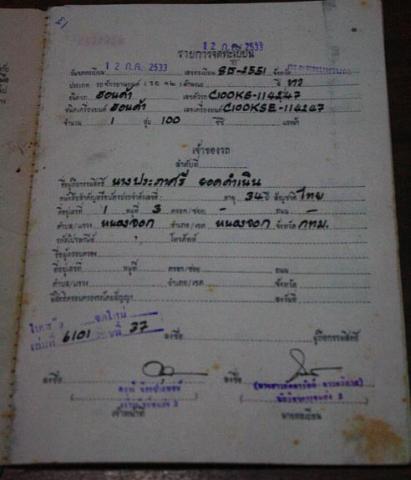 12 ก.ค. 2533
รายการจดทะเบียน
วันจดทะเบียน 12 ก.ค. 2533 เลขทะเบียน 2551 จังหวัด กรุงเทพมหานคร
ประเภท รถจักรยานยนต์ ลักษณะ สี
ยี่ห้อรถ ฮอนด้า เลขตัวรถ C100KS-114247
ยี่ห้อเครื่องยนต์ ฮอนด้า เลขเครื่องยนต์ C100KSE-114247
จำนวน 1 สูบ 100 ซีซี
เจ้าของรถ
ลำดับที่
ชื่อผู้ถือกรรมสิทธิ์ นางประภาศรี ยอดดำเนิน
อายุ 34 ปี สัญชาติ ไทย
ที่อยู่เลขที่ 1 หมู่ที่ 3 ตรอก/ซอย - ถนน -
ตำบล/แขวง หนองจอก อำเภอ/เขต หนองจอก จังหวัด กทม.
รหัสไปรษณีย์ โทรศัพท์
ชื่อผู้ครอบครอง
ที่อยู่เลขที่ หมู่ที่ ตรอก/ซอย ถนน
ตำบล/แขวง อำเภอ/เขต จังหวัด
มีสิทธิครอบครองรถโดยสัญญา ลงวันที่
เล่มที่ 6101 37
ลงชื่อ ผู้ถือกรรมสิทธิ์
ลงชื่อ ลงชื่อ
เจ้าหน้าที่ นายทะเบียน